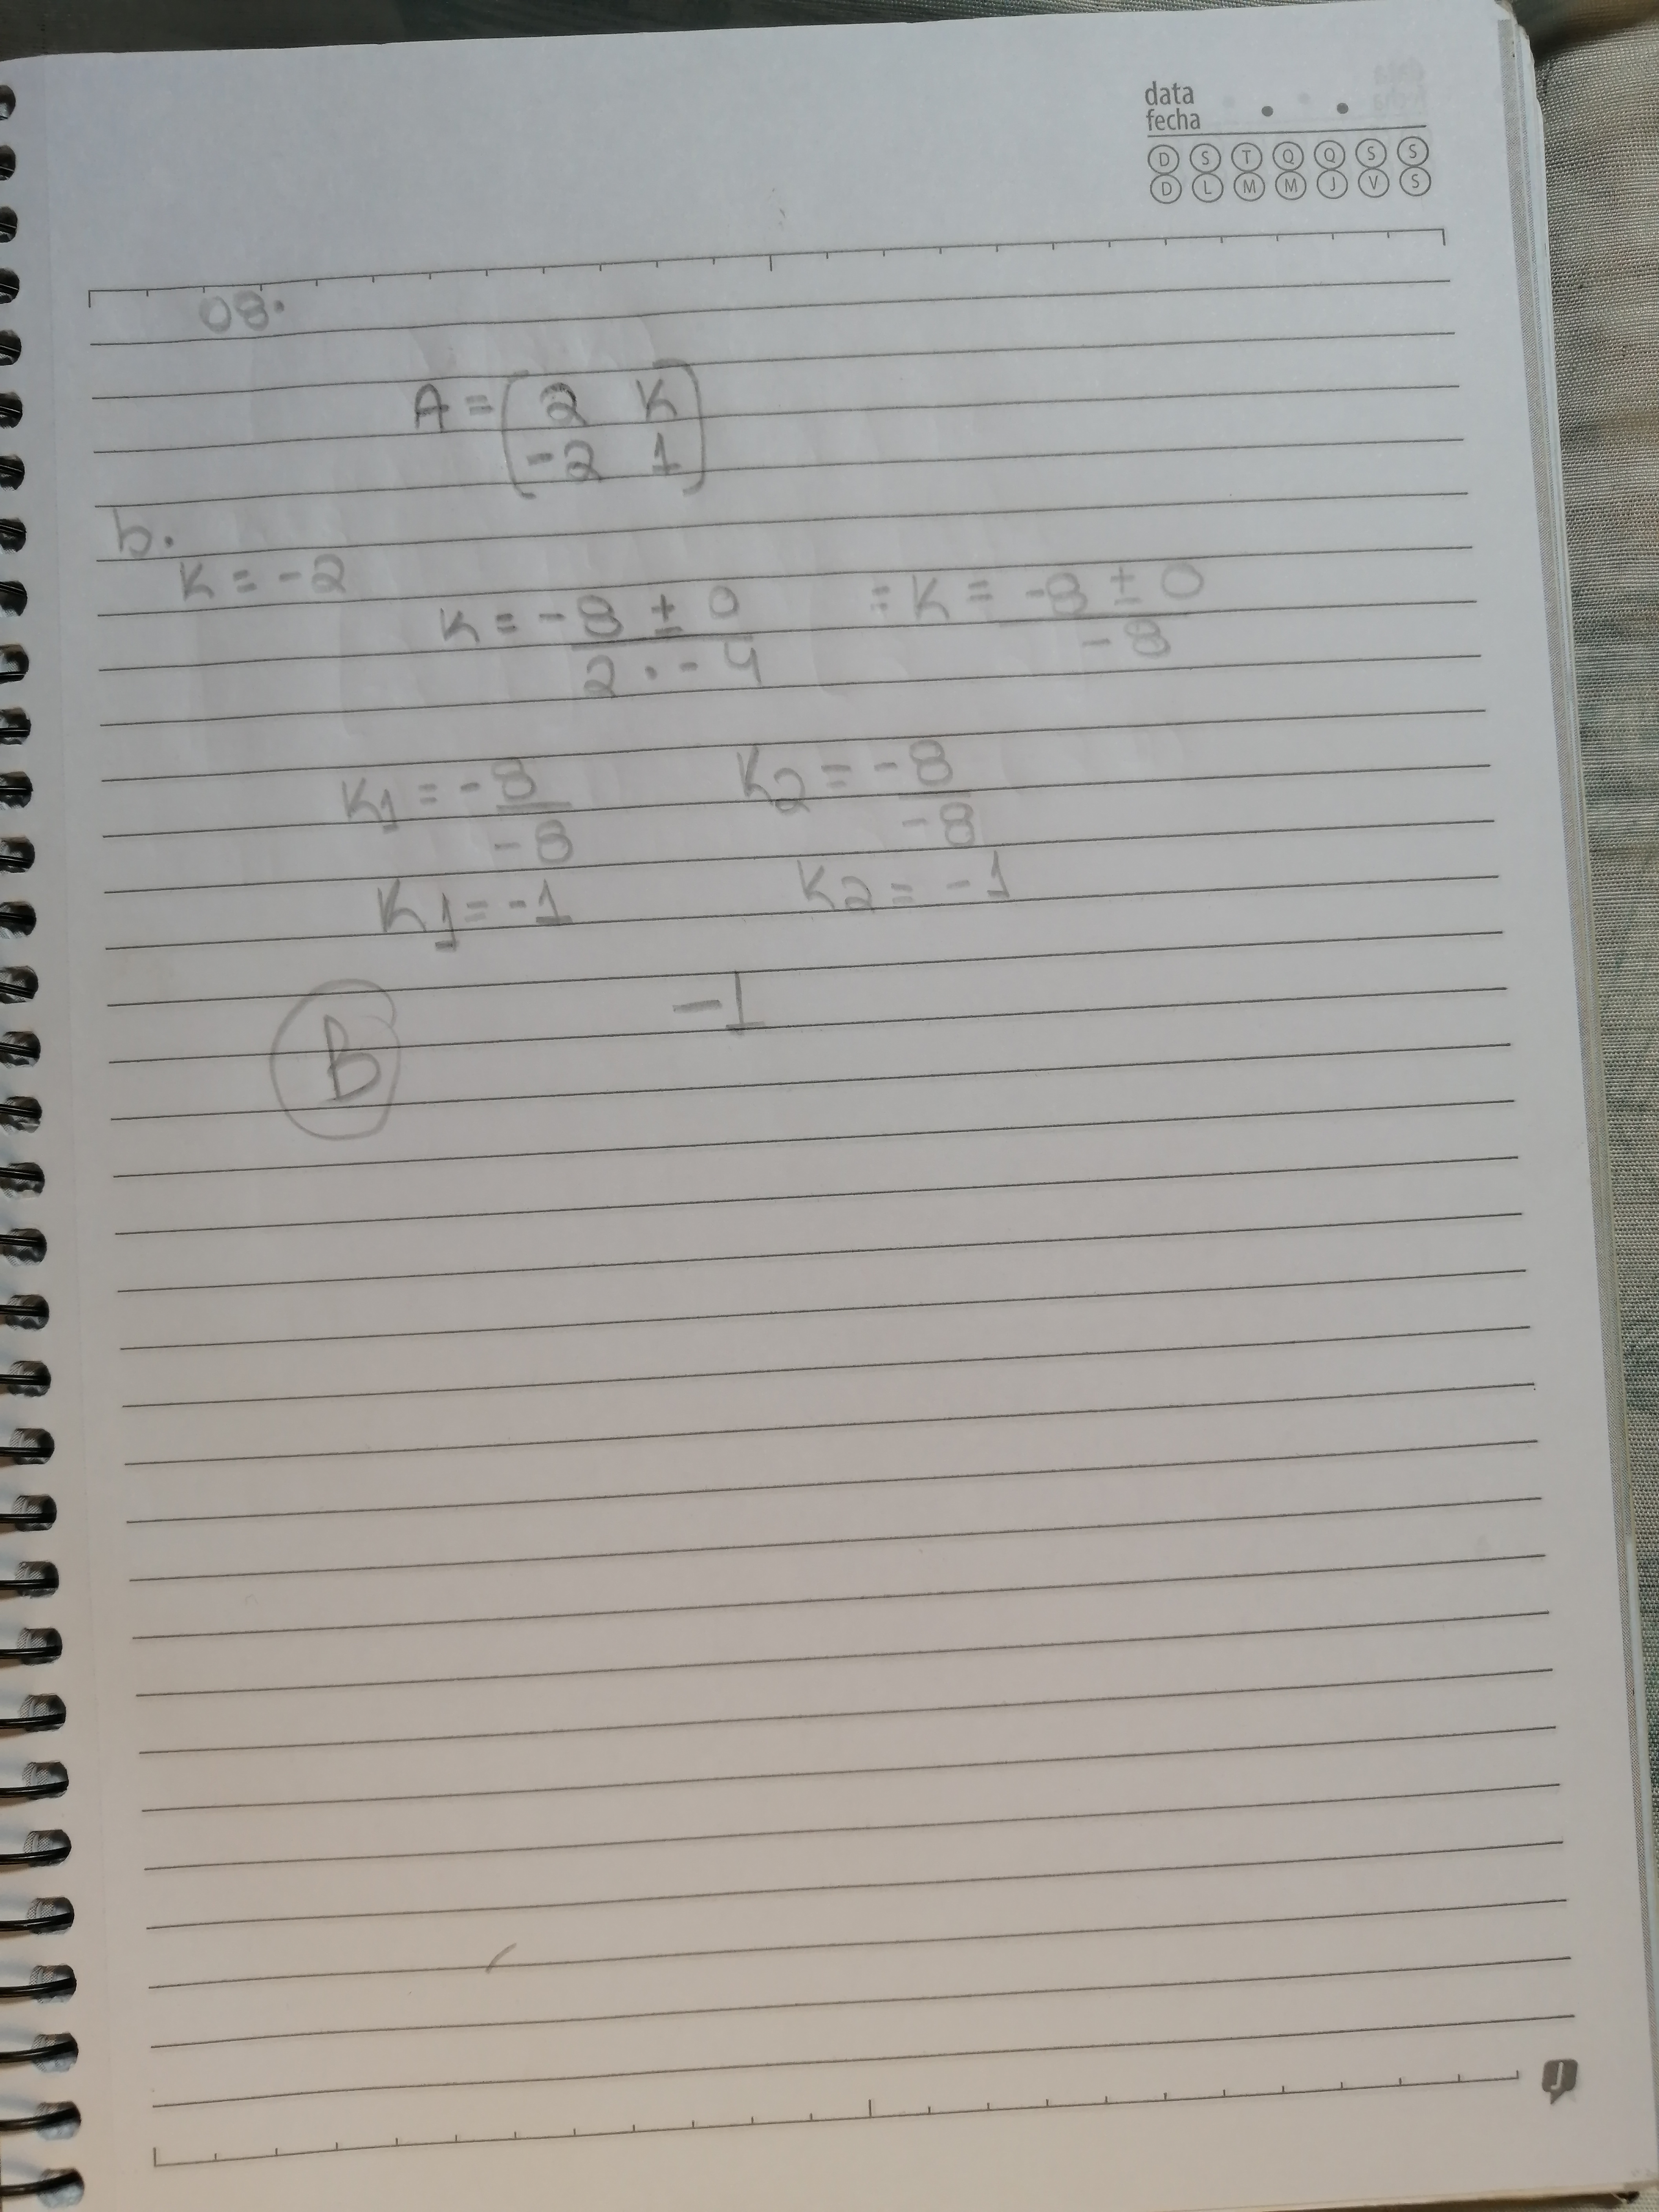 data
fecha
D S T Q Q S S
D L M M J V S
08.
A = ( 2 K
-2 1 )
b.
K = -2
K = -8 ± 0 / 2 . -4 = K = -8 ± 0 / -8
K1 = -8 / -8 K2 = -8 / -8
K1 = -1 K2 = -1
-1
B